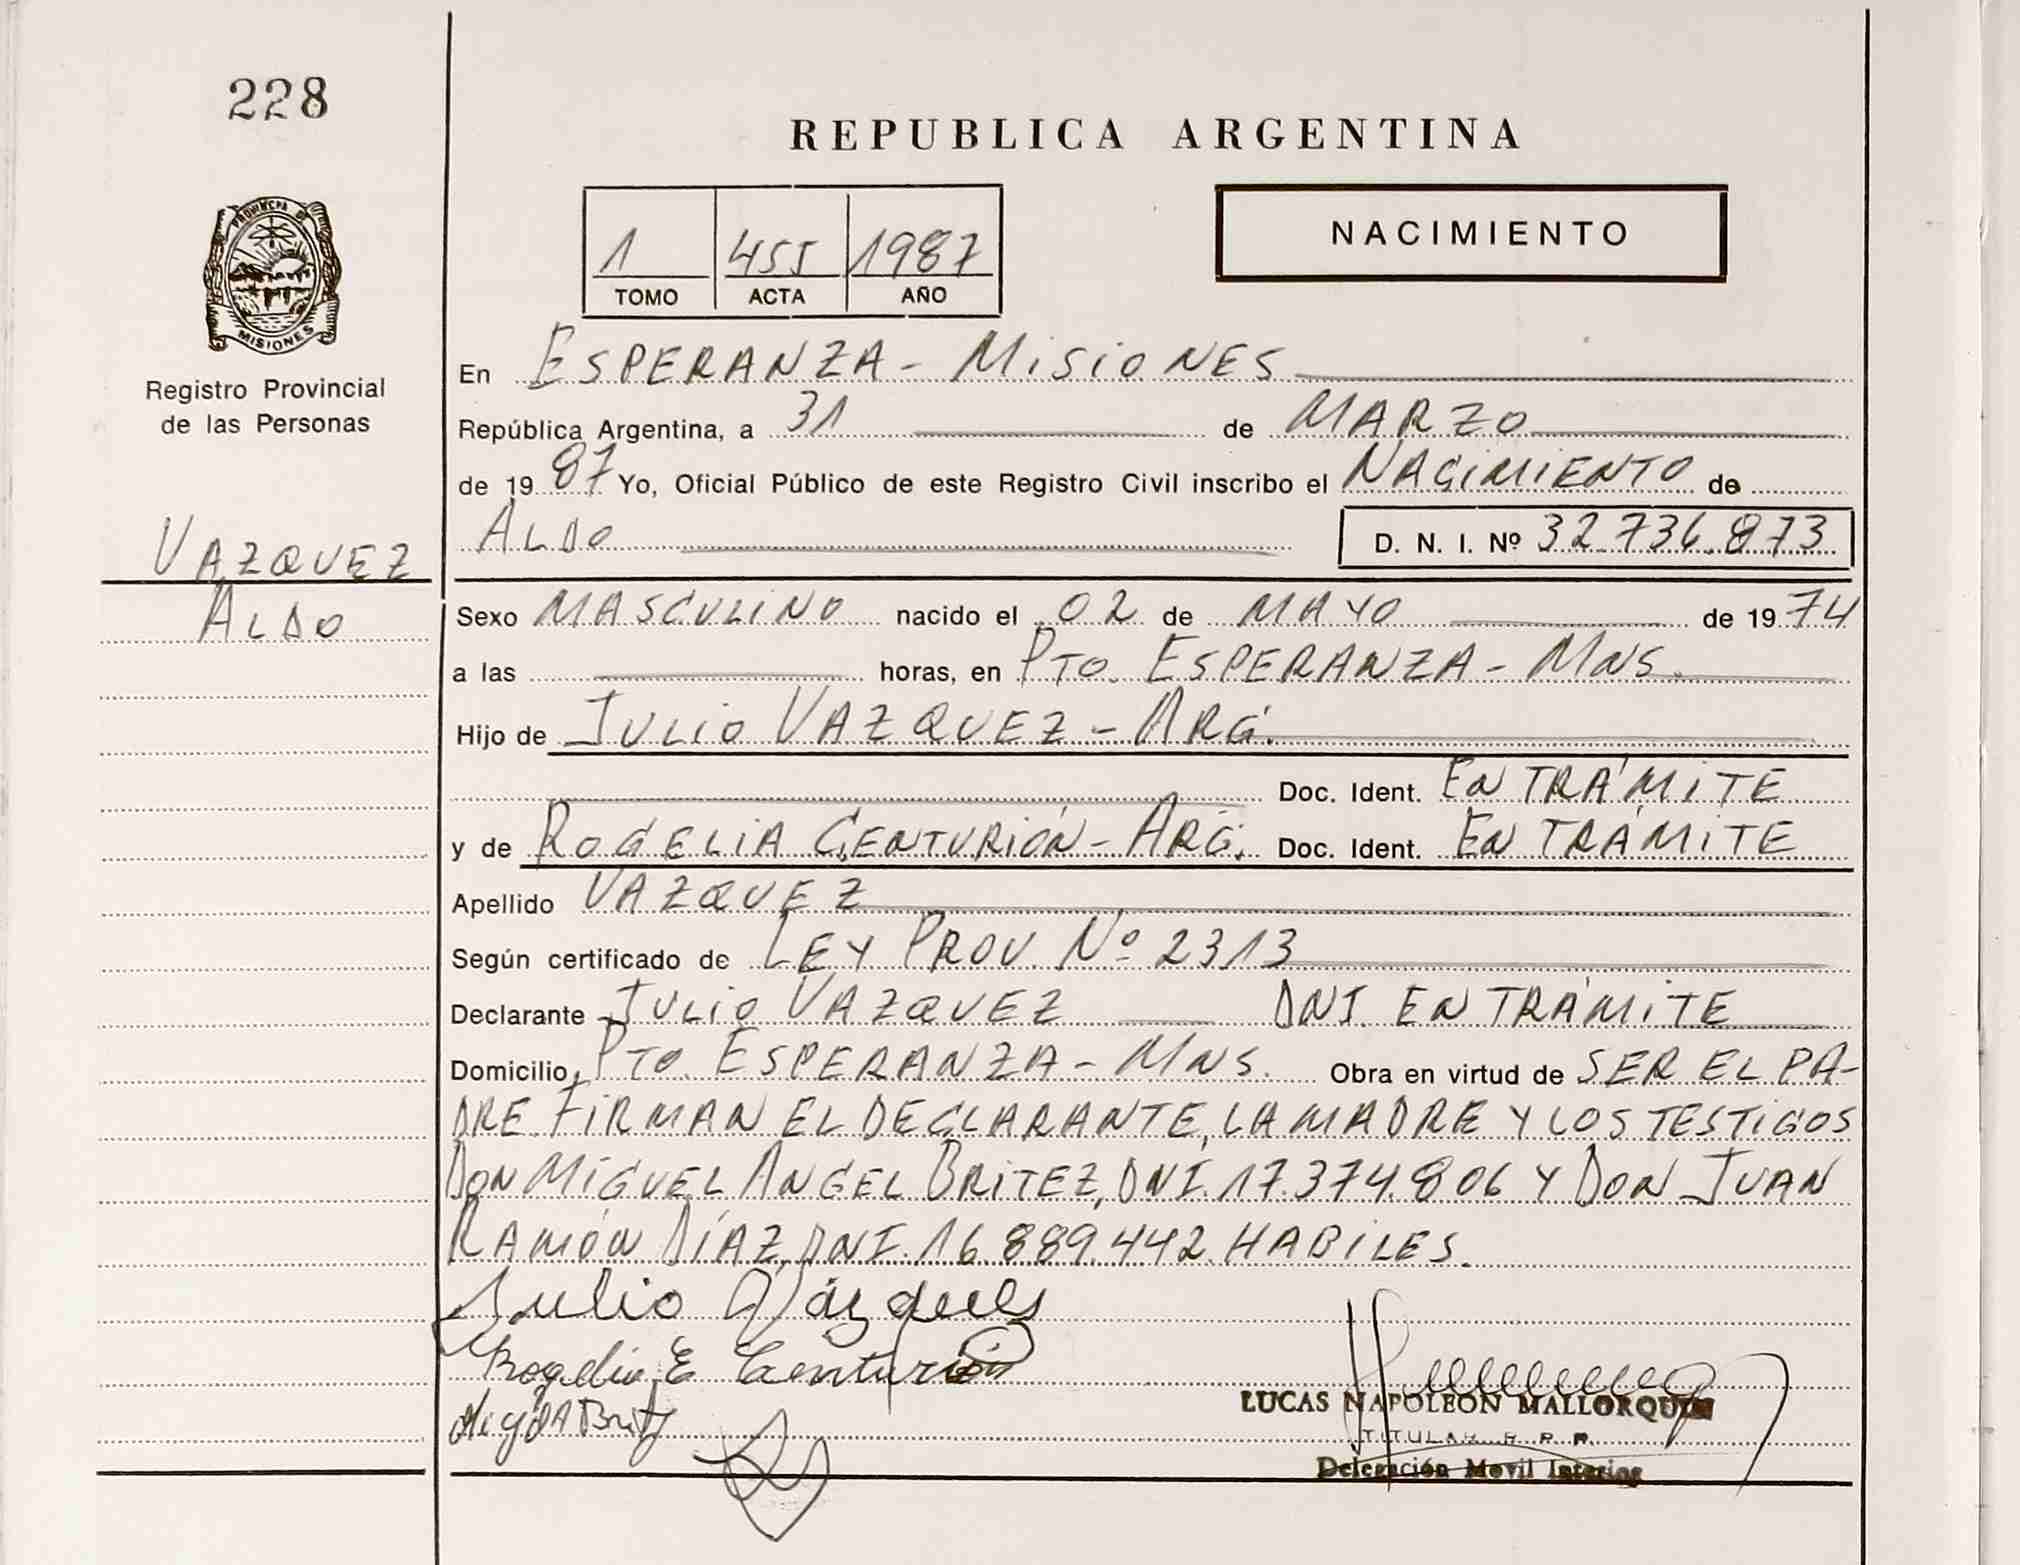 228
REPUBLICA ARGENTINA
NACIMIENTO
1 455 1987
TOMO ACTA AÑO
MISIONES
Registro Provincial
de las Personas
VAZQUEZ
ALDO
En ESPERANZA - MISIONES
República Argentina, a 31 de MARZO
de 1987 Yo, Oficial Público de este Registro Civil inscribo el NACIMIENTO de
ALDO D. N. I. Nº 32.736.873
Sexo MASCULINO nacido el 02 de MAYO de 1974
a las horas, en PTO. ESPERANZA - MNS.
Hijo de JULIO VAZQUEZ - ARG.
Doc. Ident. EN TRÁMITE
y de ROGELIA CENTURIÓN - ARG. Doc. Ident. EN TRÁMITE
Apellido VAZQUEZ
Según certificado de LEY PROV. Nº 2313
Declarante JULIO VAZQUEZ DNI. EN TRÁMITE
Domicilio PTO. ESPERANZA - MNS. Obra en virtud de SER EL PA-
DRE. FIRMAN EL DECLARANTE, LA MADRE Y LOS TESTIGOS
DON MIGUEL ANGEL BRITEZ, DNI. 17.374.806 Y DON JUAN
RAMÓN DÍAZ, DNI. 16.889.442. HABILES.
Julio Vázquez
Rogelia E Centurión
LUCAS NAPOLEON MALLORQUIN
TITULAR R. P. P.
Delegación Movil